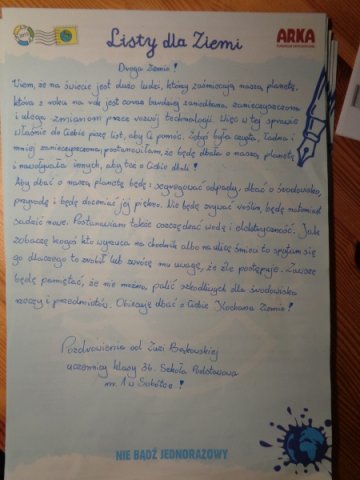 Listy dla Ziemi
ARKA
Droga Ziemio!
Wiem, że na świecie jest dużo ludzi, którzy zaśmiecają naszą planetę,
która z roku na rok jest coraz bardziej zaniedbana, zanieczyszczona
i ulega zmianom przez rozwój technologii. Więc w tej sprawie
właśnie do Ciebie piszę list, aby Ci pomóc. Żebyś była czysta, ładna i
mniej zanieczyszczona, postanowiłam, że będę dbała o naszą planetę
i nawoływała innych, aby też o Ciebie dbali!
Aby dbać o naszą planetę będę: segregować odpady, dbać o środowisko,
przyrodę i będę doceniać jej piękno. Nie będę zrywać roślin, będę natomiast
sadzić nowe. Postanawiam także oszczędzać wodę i elektryczność. Jak
zobaczę kogoś kto wyrzuca na chodnik albo na ulicę śmieci to spytam się
go dlaczego to zrobił lub zwrócę mu uwagę, że źle postępuje. Zawsze
będę pamiętać, że nie można palić szkodliwych dla środowiska
rzeczy i przedmiotów. Obiecuję dbać o Ciebie Kochana Ziemio!
Pozdrowienia od Zuzi
uczennicy klasy 3b. Szkoła Podstawowa
nr. 1 w Sobótce!
NIE BĄDŹ JEDNORAZOWY